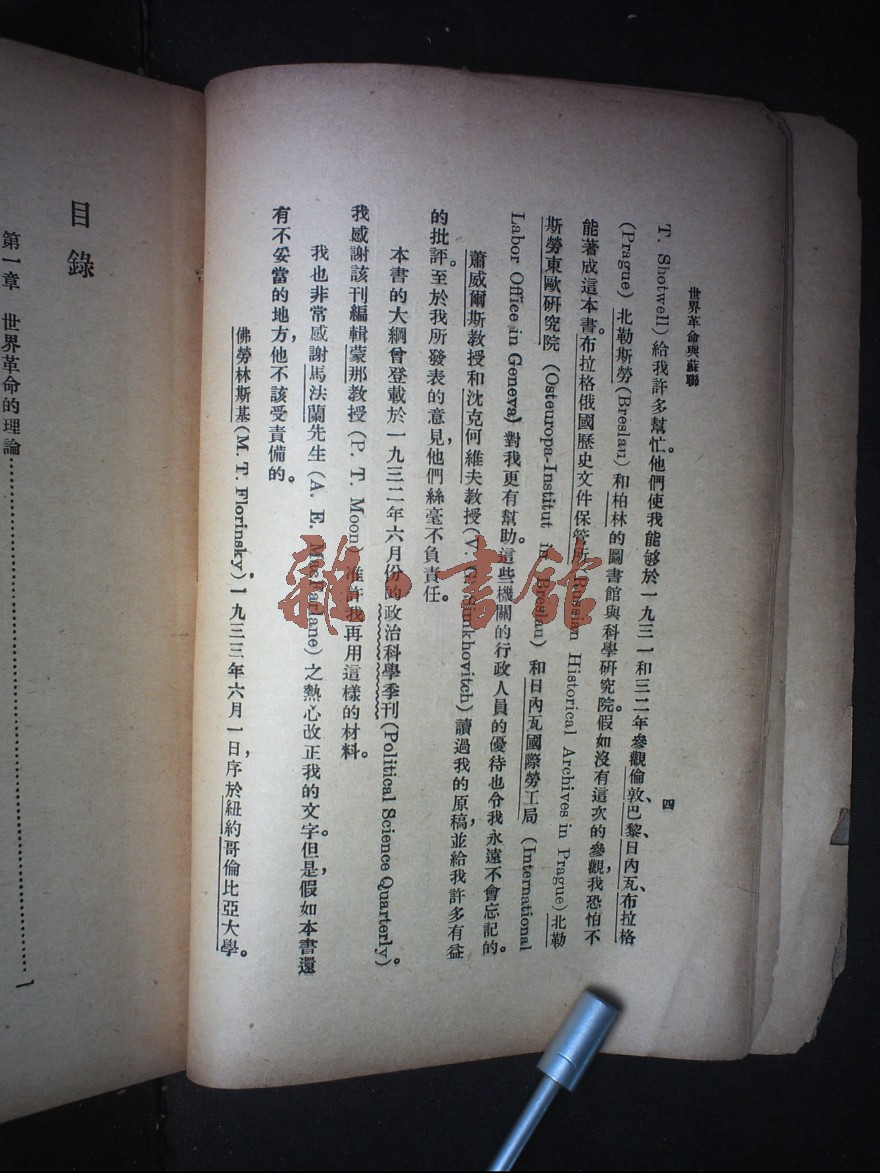 世界革命與蘇聯
四
T. Shotwell)給我許多幫忙。他們使我能够於一九三一和三二年參觀倫敦、巴黎、日內瓦、布拉格
(Prague)北勒斯勞(Breslau)和柏林的圖書館與科學研究院。假如沒有這次的參觀,我恐怕不
能著成這本書。布拉格俄國歷史文件保管所(Russian Historical Archives in Prague)北勒
斯勞東歐研究院 (Osteuropa-Institut in Breslau) 和日內瓦國際勞工局 (International
Labor Office in Geneva) 對我更有幫助。這些機關的行政人員的優待也令我永遠不會忘記的。
蕭威爾斯教授和沈克何維夫教授(V. G. Simkhovitch)讀過我的原稿,並給我許多有益
的批評。至於我所發表的意見,他們絲毫不負責任。
本書的大綱曾登載於一九三二年六月份的政治科學季刊(Political Science Quarterly)。
我感謝該刊編輯蒙那教授(P. T. Moon)准許我再用這樣的材料。
我也非常感謝馬法蘭先生(A. E. MacFarlane)之熱心改正我的文字。但是,假如本書還
有不妥當的地方,他不該受責備的。
佛勞林斯基(M. T. Florinsky)一九三三年六月一日,序於紐約哥倫比亞大學。
目錄
第一章 世界革命的理論……………………………………1
雜·書館